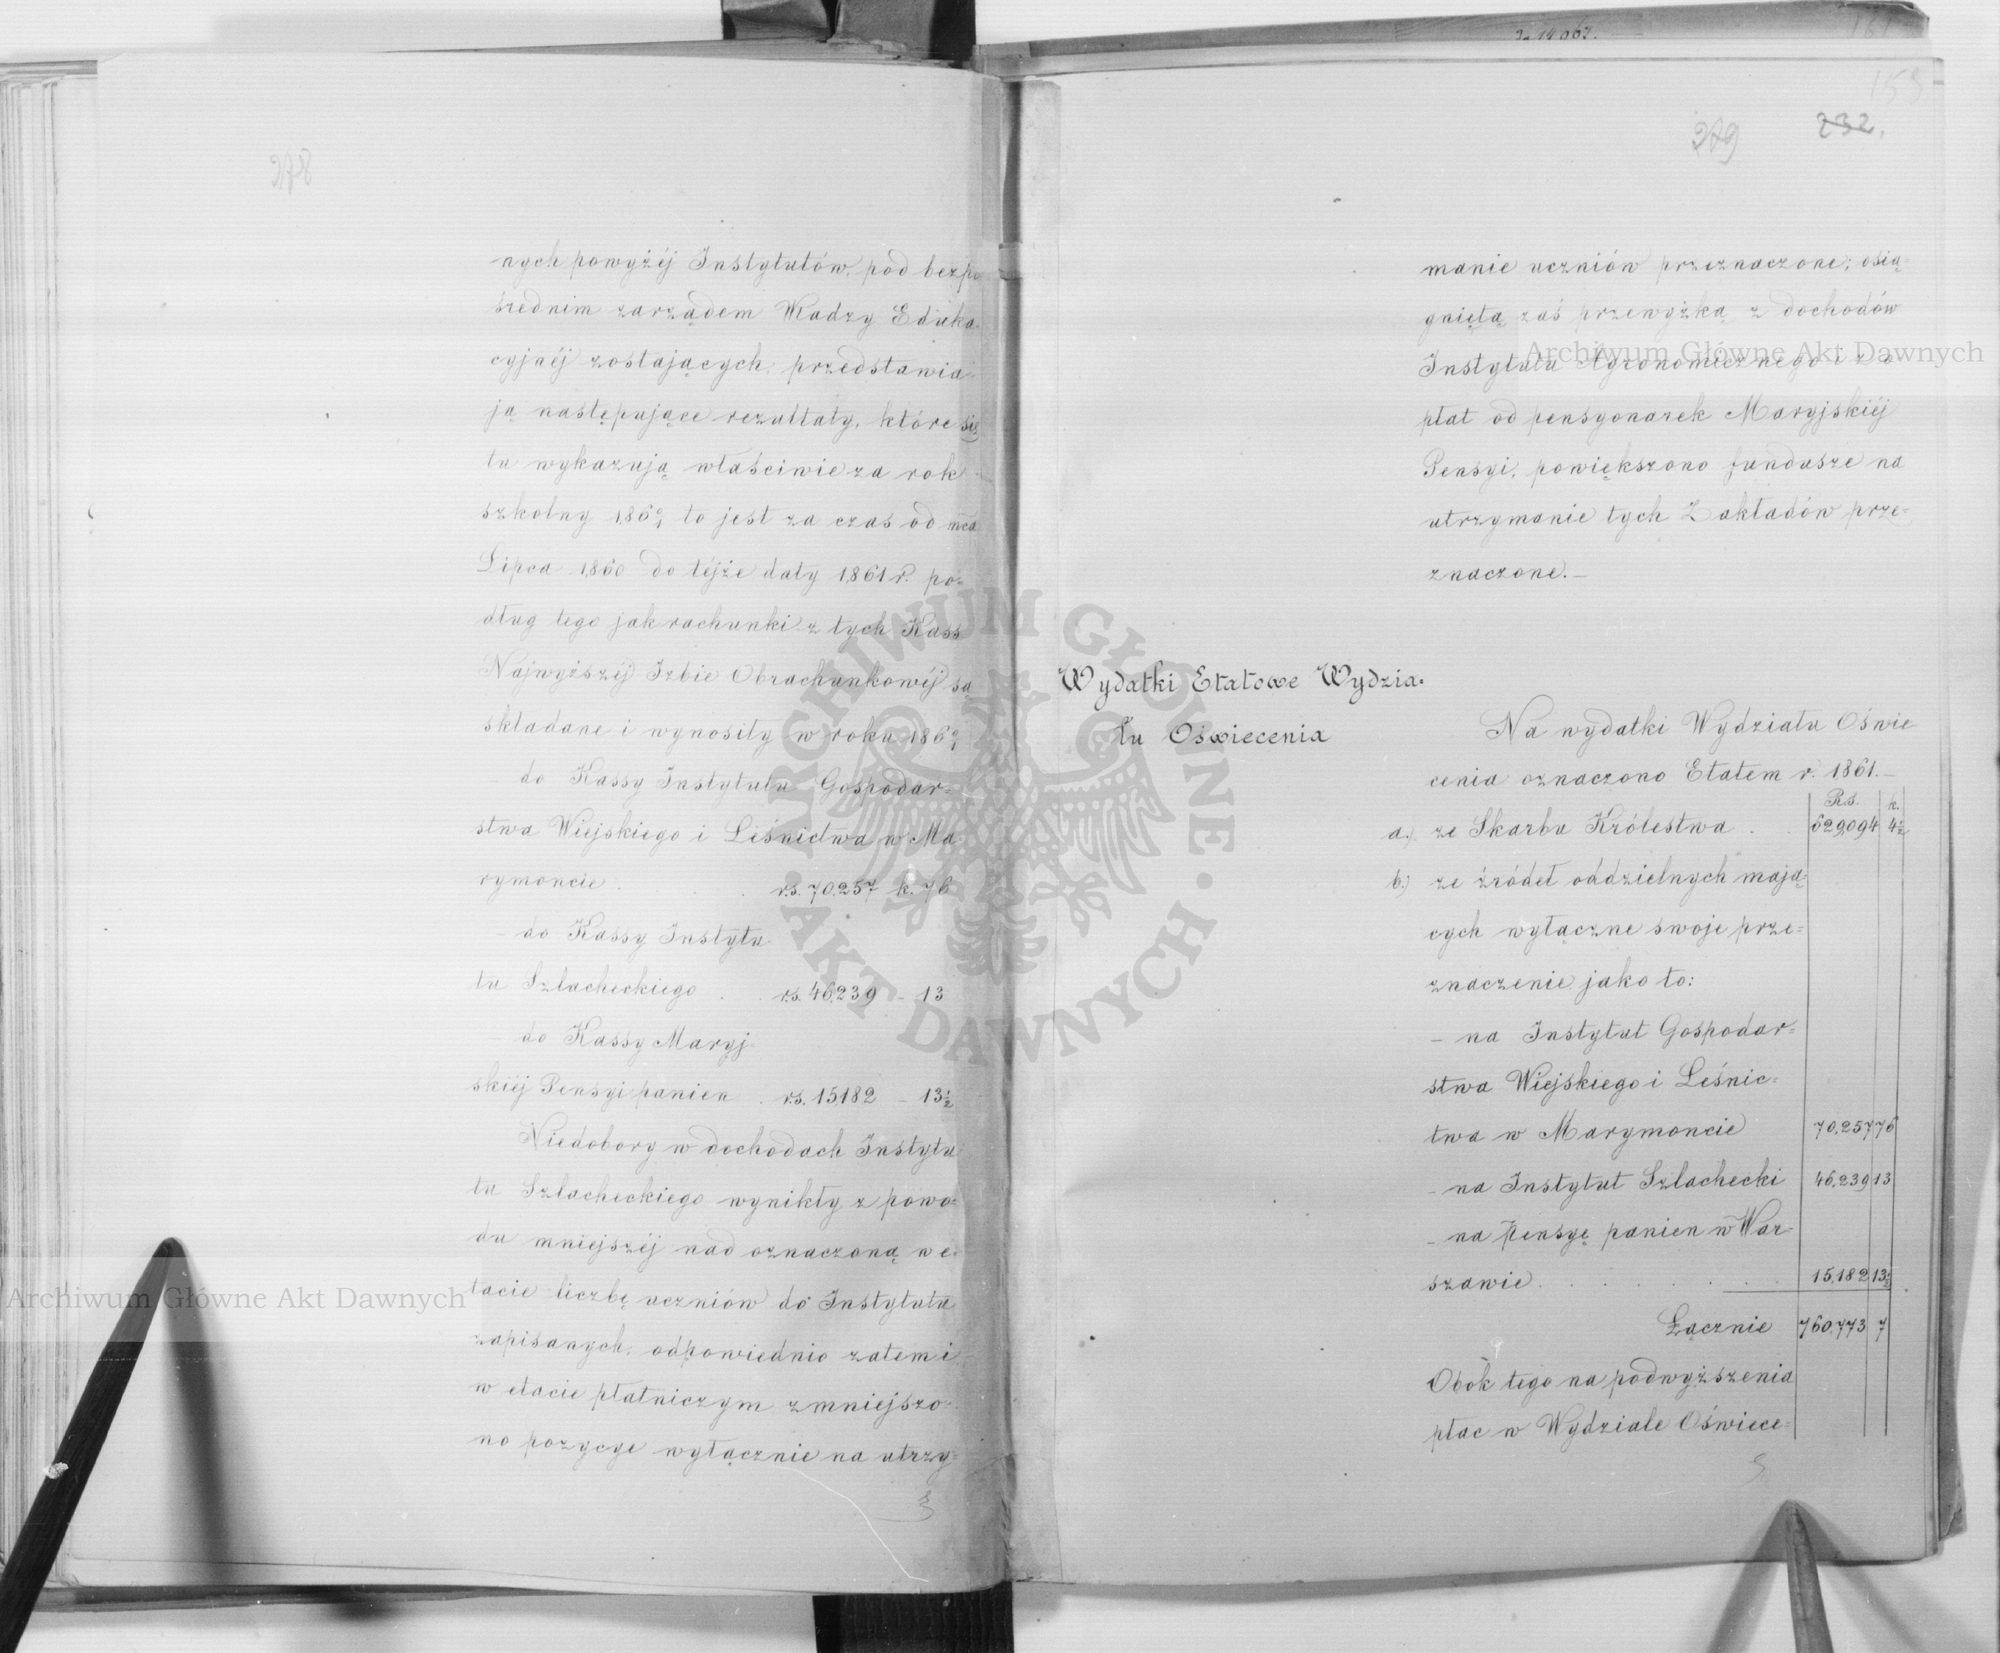 278
nych powyżéj Instytutów, pod bezpo
średnim zarządem Władzy Eduka-
cyjnéj zostających, przedstawia-
ją następujące rezultaty, które się
tu wykazują właściwie za rok
szkolny 186 0/1 to jest za czas od mca
Lipca 1860 do téjże daty 1861 r. po-
dług tego jak rachunki z tych Kass
Najwyższéj Izbie Obrachunkowéj są
składane i wynosiły w roku 186 0/1
– do Kassy Instytutu Gospodar=
stwa Wiejskiego i Leśnictwa w Ma
rymoncie . . . rs. 70.257 k. 76
– do Kassy Instytu-
tu Szlacheckiego . . rs. 46,239 – 13
– do Kassy Maryj-
skiéj Pensyi panien . rs. 15,182 – 13½
Niedobory w dochodach Instytu
tu Szlacheckiego wynikły z powo-
du mniejszéj nad oznaczoną w e-
tacie liczbę uczniów do Instytutu
zapisanych, odpowiednio zatem i
w etacie płatniczym zmniejszo-
no pozycye wyłącznie na utrzy-
14067.
161
153
279 232.
manie uczniów przeznaczone; osią-
gniętą zaś przewyżką z dochodów
Instytutu Agronomicznego i z o
płat od pensyonarek Maryjskiéj
Pensyi, powiększono fundusze na
utrzymanie tych Zakładów prze-
znaczone. –
Wydatki Etatowe Wydzia-
łu Oświecenia
Na wydatki Wydziału Oświe
cenia oznaczono Etatem r. 1861. –
Rs. k.
a.) ze Skarbu Królestwa . . 629,094 4½
b.) ze źródeł oddzielnych mają-
cych wyłączne swoje prze=
znaczenie jako to:
– na Instytut Gospodar=
stwa Wiejskiego i Leśnic-
twa w Marymoncie 70,257 76
– na Instytut Szlachecki 46,239 13
– na Pensyę panien w War-
szawie . . . . . . 15,182 13½
Łącznie 760,773 7
Obok tego na podwyższenia
płac w Wydziale Oświece-
Archiwum Główne Akt Dawnych
Archiwum Główne Akt Dawnych
ARCHIWUM GŁÓWNE · AKT DAWNYCH ·